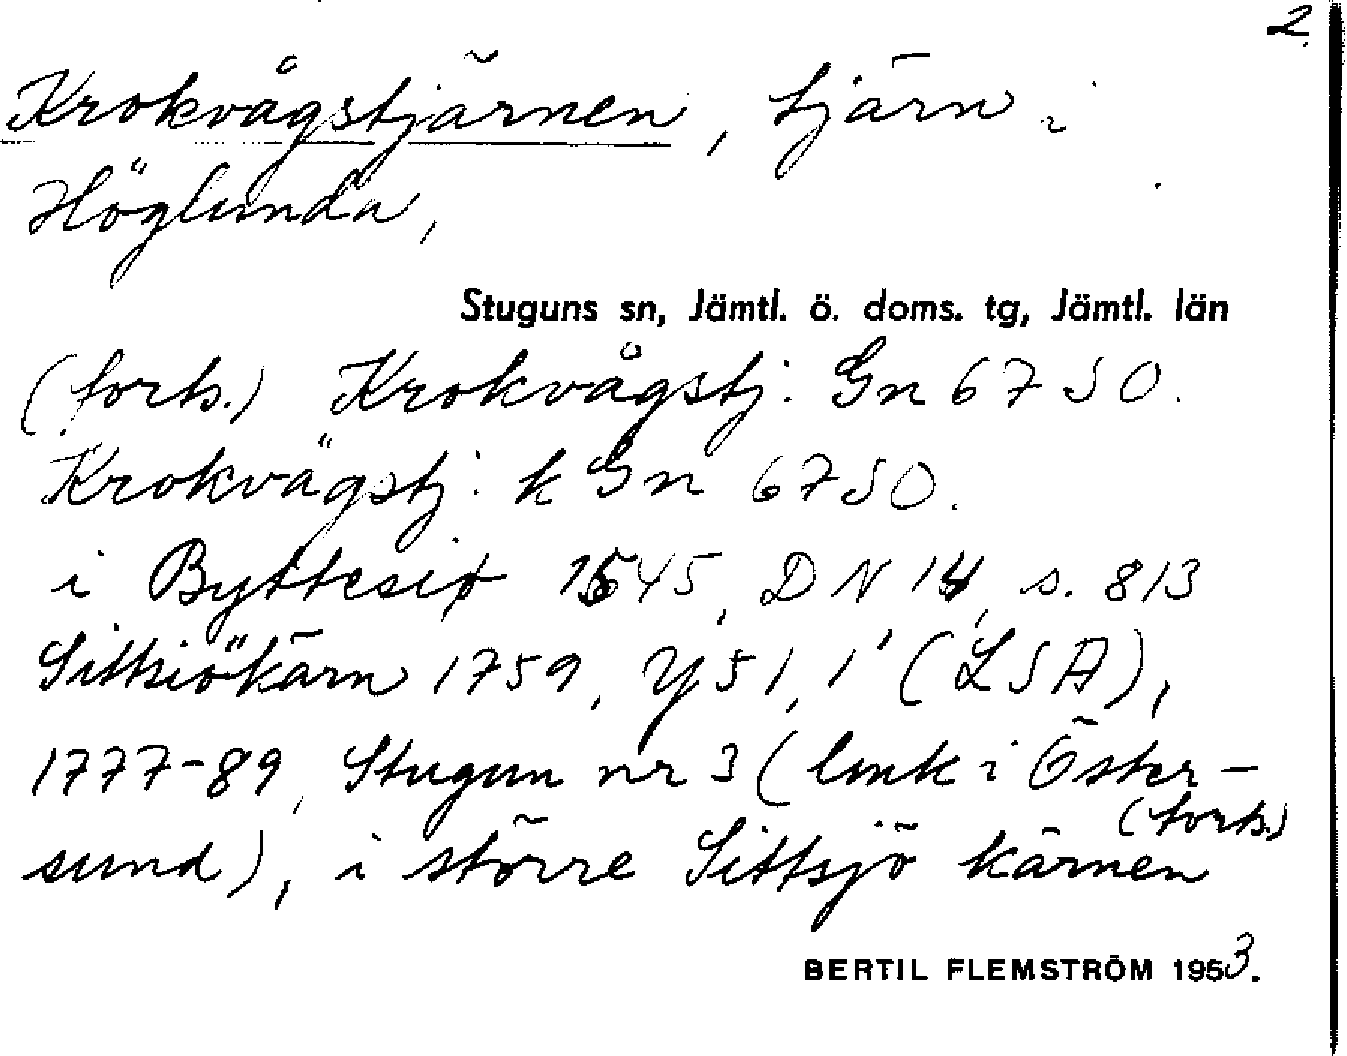 2.
Krokvågstjärnen, tjärn i
Höglunda,
Stuguns sn, Jämtl. ö. doms. tg, Jämtl. län
(forts.) Krokvågstj. Gn 67 SO.
Krokvägstj. k Gn 67 SO.
i Byttesiø 1545, DN 14, s. 813
Sittsiökärn 1759, Y 51, 1' (LSA),
1777-89, Stugun nr 3 (lmk i Öster-
sund), i större Sittsjö kärnen (forts.)
BERTIL FLEMSTRÖM 1953.